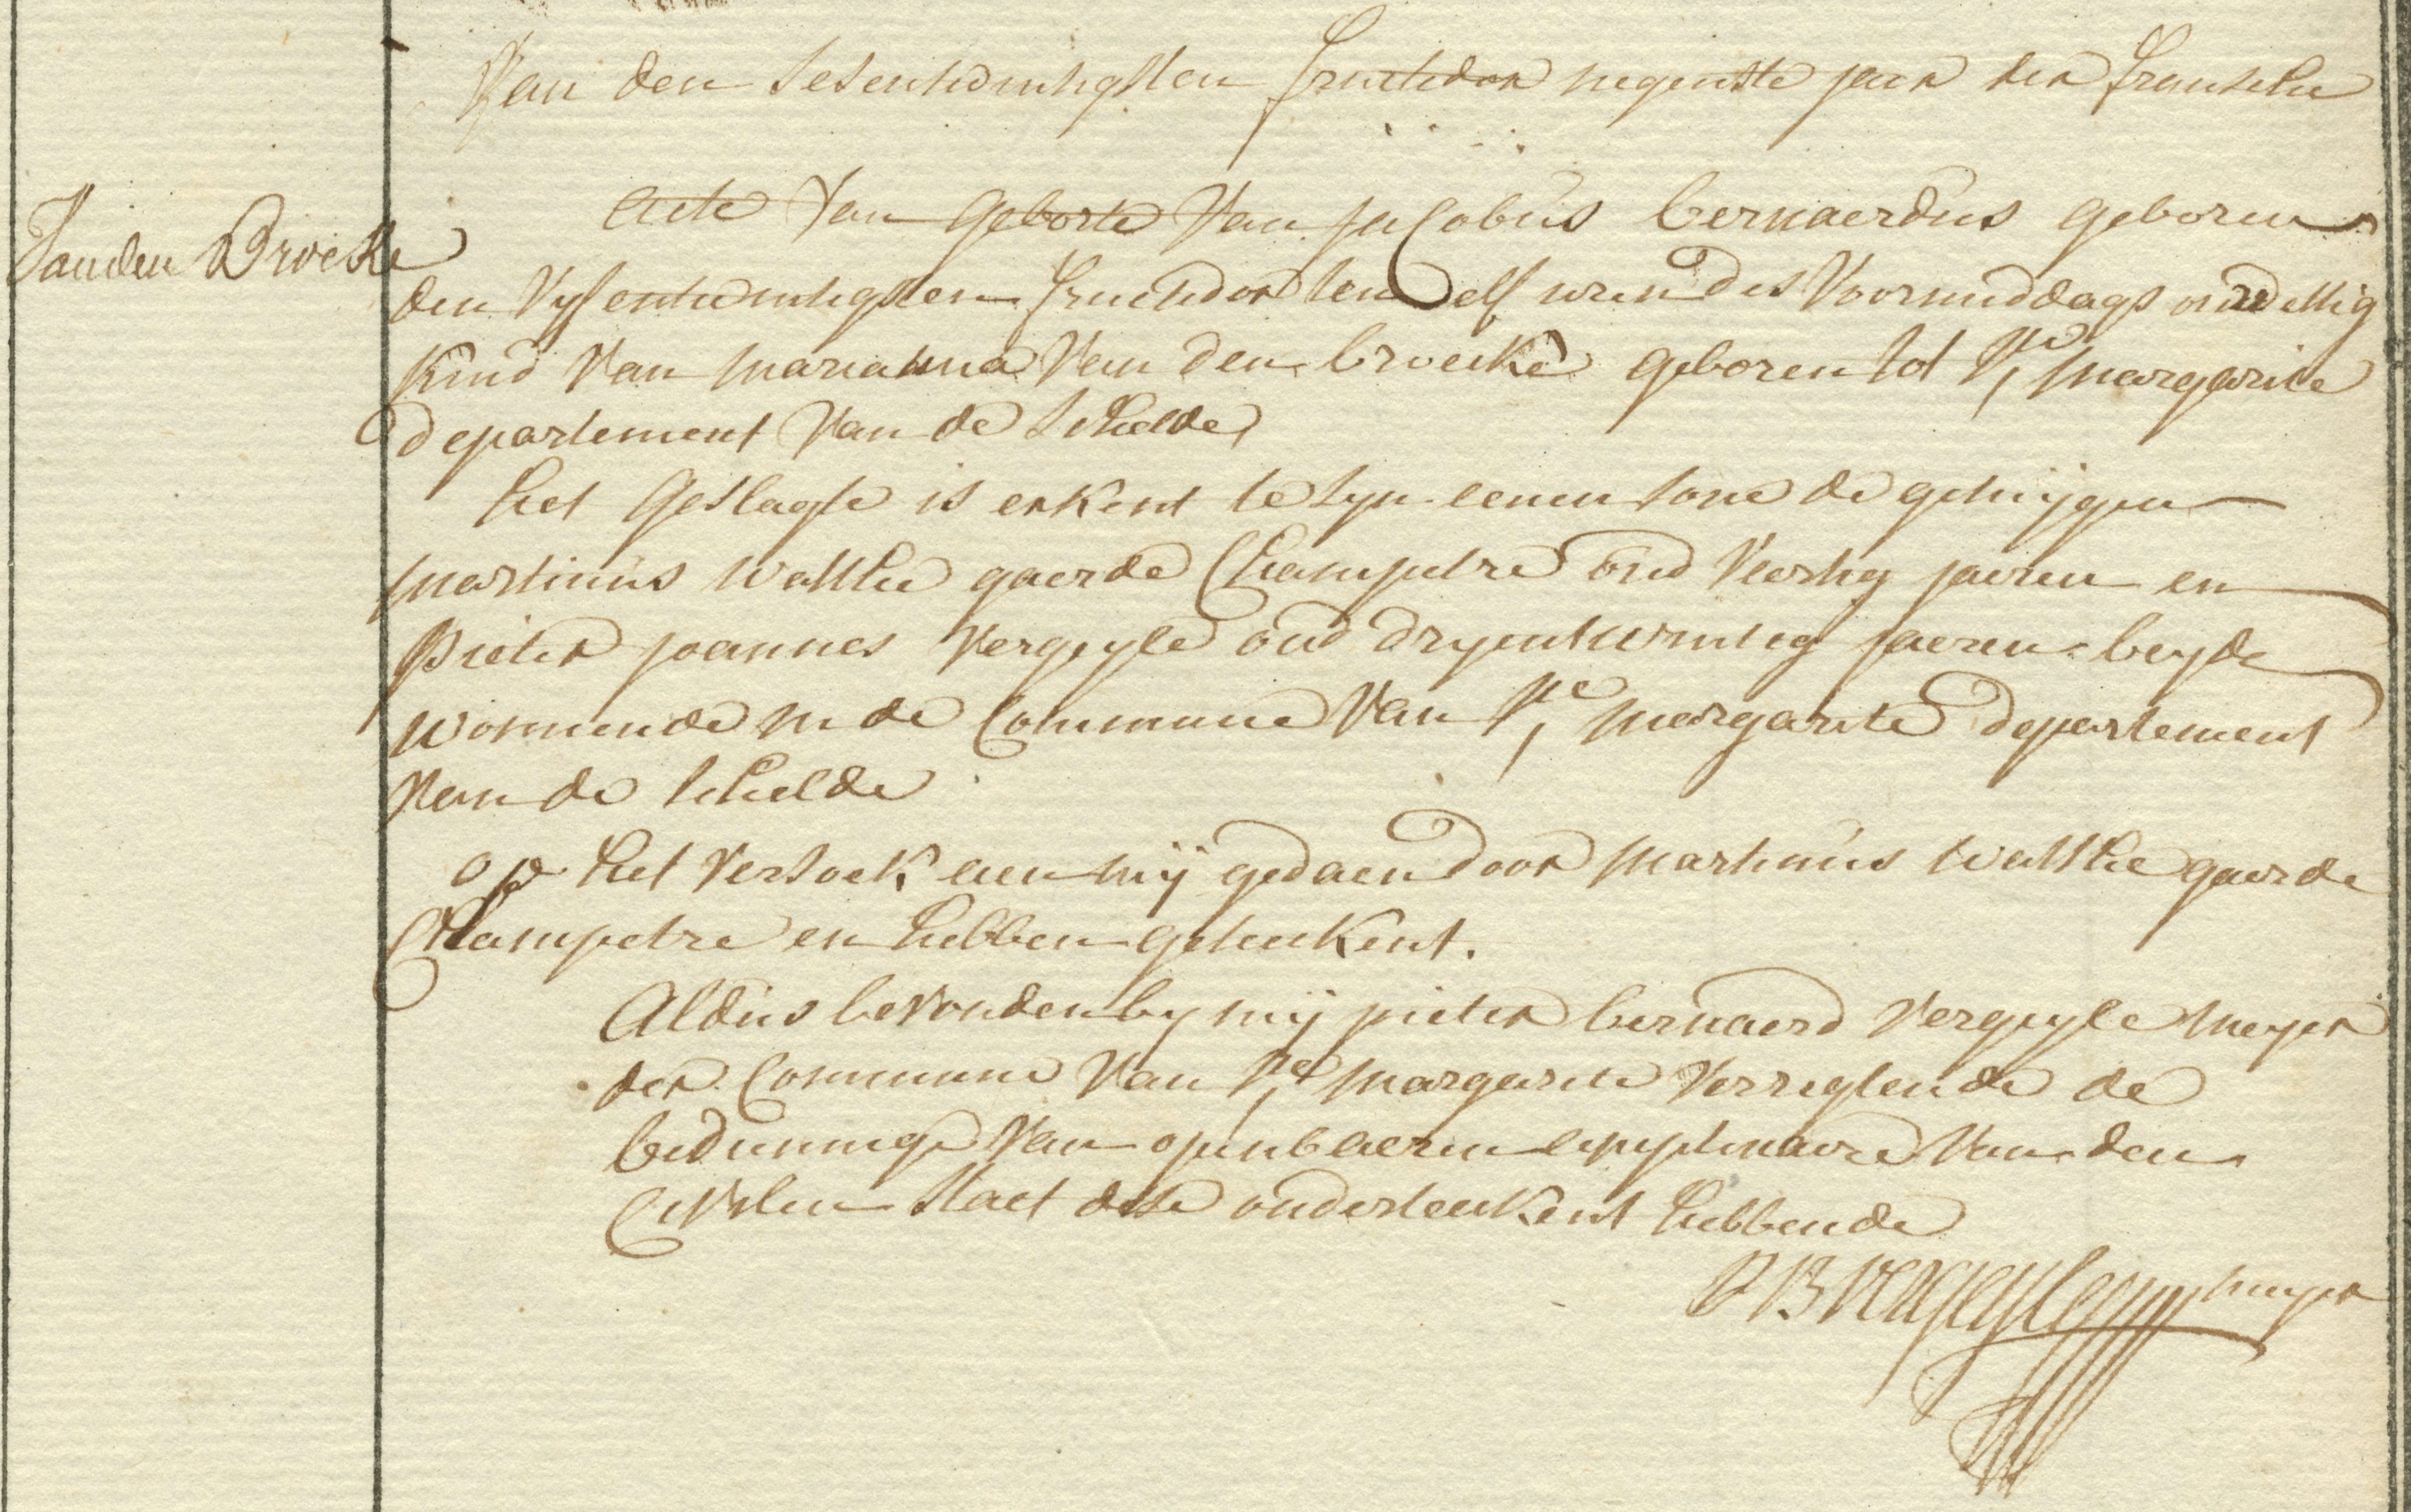 Van den Sesentwintigsten fructidor negenste jaer der fransche
Acte van geborte van jacobus bernaerdus geboren
Vanden Broecke
den Vyfentwintigsten fructidor ten elf uren des Voormiddags onwettig
kind van marianna Van den broecke geboren tot Ste margarite
departement van de Schelde
het geslagte is erkent te syn eenen sone de getuijgen
martinus watthe gaerde Champetre oud Veertig jaeren en
Pieter joannes Vergeyle oud dryentwintig jaeren beyde
woonnende in de Commune van Ste margarite departement
van de Schelde
op het versoek aen mij gedaen door martinus watthe gaerde
Champetre en hebben geteekent.
Aldus bevonden by mij pieter bernaerd Vergeyle meyer
der Commune van Ste margarite Verriglende de
bedieninge van openbaeren van den
Civilen Staet dese onderteekent hebbende
P B vergeyle meyer